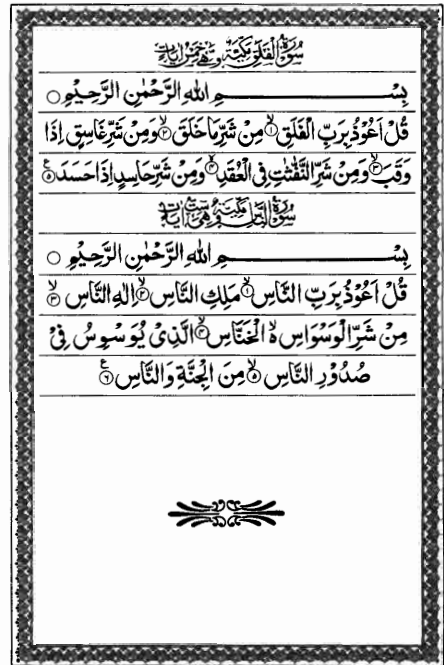 سُوْرَةُ الْفَلَقِ مَكِّيَّةٌ وَّهِيَ خَمْسُ اٰيَاتٍ
بِسْـــــــــــــــــمِ اللهِ الرَّحْمٰنِ الرَّحِيْمِ ○
قُلْ اَعُوْذُ بِرَبِّ الْفَلَقِ ۙ۝۱ مِنْ شَرِّ مَا خَلَقَ ۙ۝۲ وَمِنْ شَرِّ غَاسِقٍ اِذَا
وَقَبَ ۙ۝۳ وَمِنْ شَرِّ النَّفّٰثٰتِ فِی الْعُقَدِ ۙ۝۴ وَمِنْ شَرِّ حَاسِدٍ اِذَا حَسَدَ ۝۵ع
سُوْرَةُ النَّاسِ مَكِّيَّةٌ وَّهِيَ سِتُّ اٰيَاتٍ
بِسْـــــــــــــــــمِ اللهِ الرَّحْمٰنِ الرَّحِيْمِ ○
قُلْ اَعُوْذُ بِرَبِّ النَّاسِ ۙ۝۱ مَلِكِ النَّاسِ ۙ۝۲ اِلٰهِ النَّاسِ ۙ۝۳
مِنْ شَرِّ الْوَسْوَاسِ ۵ۙ الْخَنَّاسِ ۙ۝۴ الَّذِیْ یُوَسْوِسُ فِیْ
صُدُوْرِ النَّاسِ ۙ۝۵ مِنَ الْجِنَّةِ وَالنَّاسِ ۝۶ع